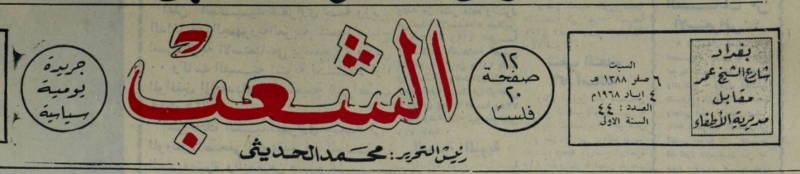 بغداد
شارع الشيخ عمر
مقابل
مديرية الأطفاء
السبت
٦ صفر ١٣٨٨ هـ
٤ ايار ١٩٦٨ م
العدد : ٤٤
السنة الاولى
١٢
صفحة
٢٠
فلسا
الشعب
جريدة
يومية
سياسية
رئيس التحرير : محمد الحديثي